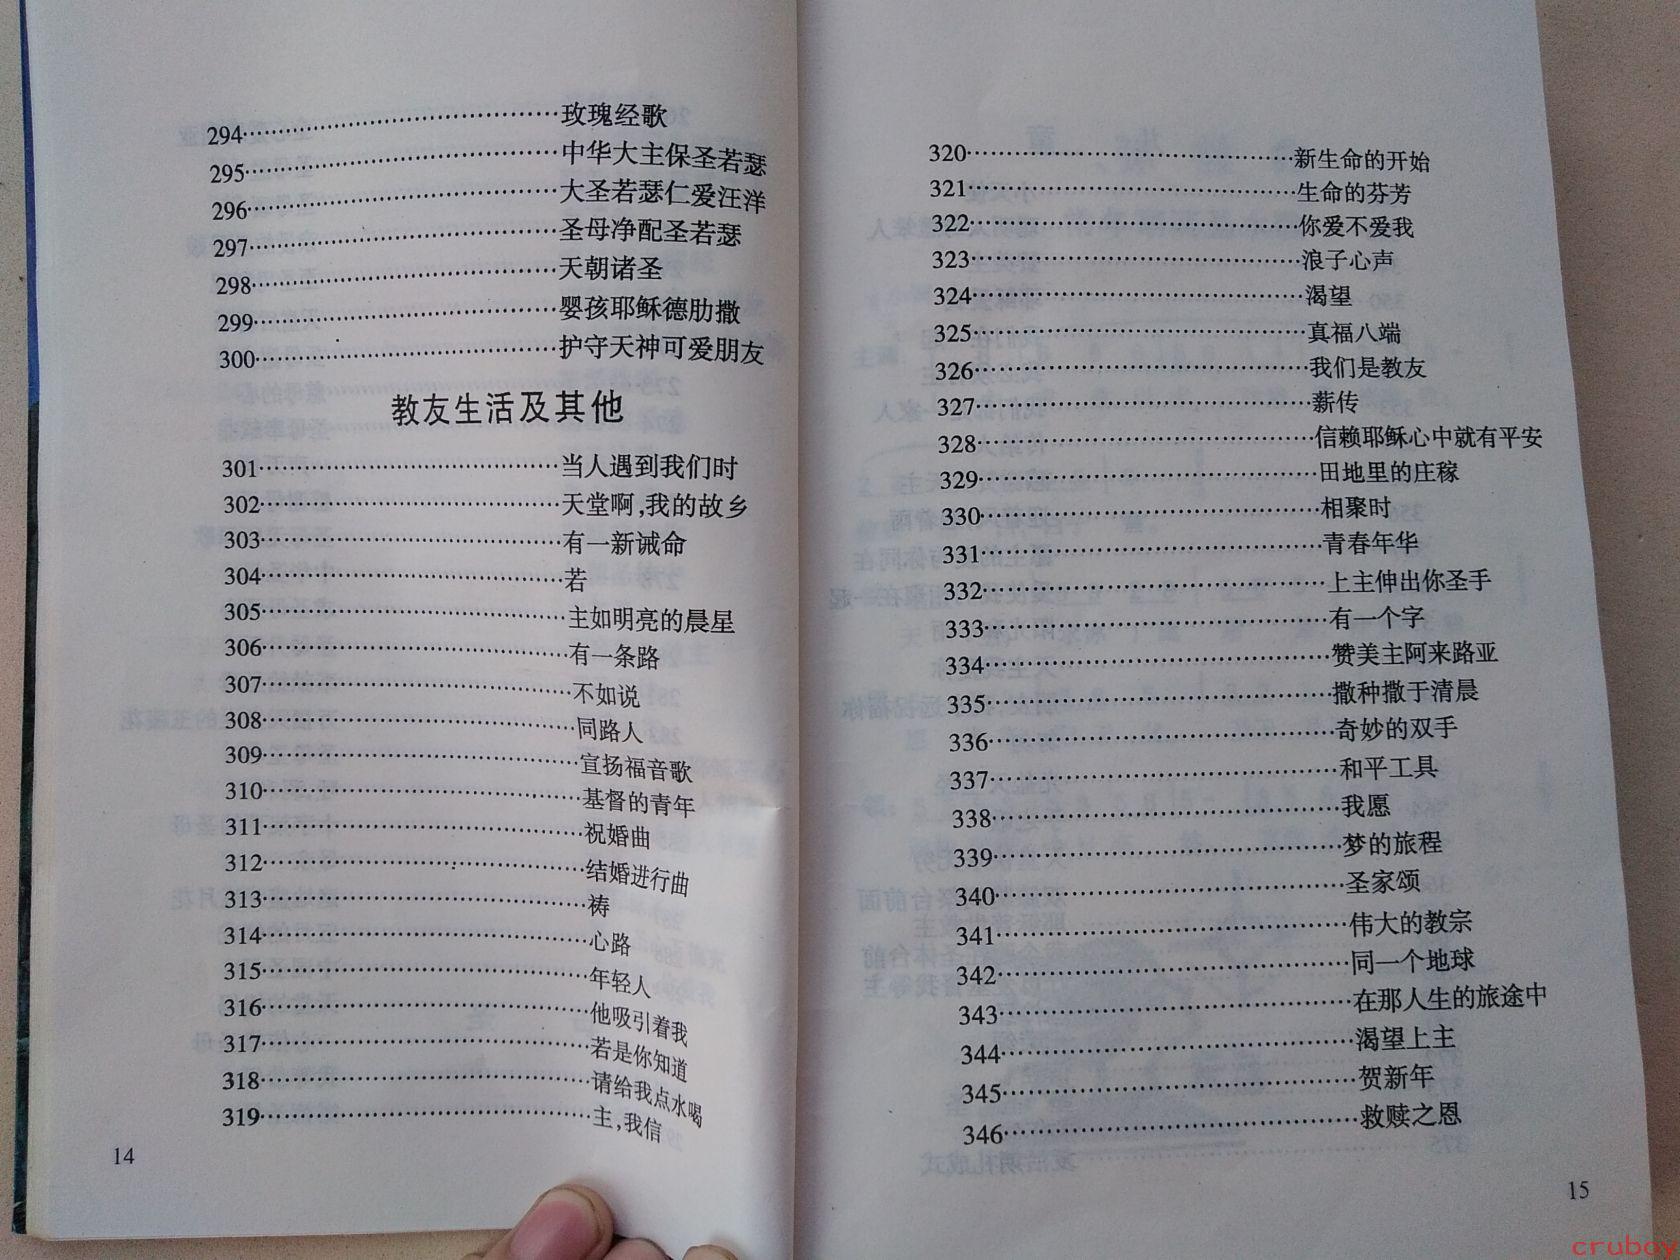 294……玫瑰经歌
295……中华大主保圣若瑟
296……大圣若瑟仁爱汪洋
297……圣母净配圣若瑟
298……天朝诸圣
299……婴孩耶稣德肋撒
300……护守天神可爱朋友
教友生活及其他
301……当人遇到我们时
302……天堂啊,我的故乡
303……有一新诫命
304……若
305……主如明亮的晨星
306……有一条路
307……不如说
308……同路人
309……宣扬福音歌
310……基督的青年
311……祝婚曲
312……结婚进行曲
313……祷
314……心路
315……年轻人
316……他吸引着我
317……若是你知道
318……请给我点水喝
319……主,我信
14
320……新生命的开始
321……生命的芬芳
322……你爱不爱我
323……浪子心声
324……渴望
325……真福八端
326……我们是教友
327……薪传
328……信赖耶稣心中就有平安
329……田地里的庄稼
330……相聚时
331……青春年华
332……上主伸出你圣手
333……有一个字
334……赞美主阿来路亚
335……撒种撒于清晨
336……奇妙的双手
337……和平工具
338……我愿
339……梦的旅程
340……圣家颂
341……伟大的教宗
342……同一个地球
343……在那人生的旅途中
344……渴望上主
345……贺新年
346……救赎之恩
15
cruboy